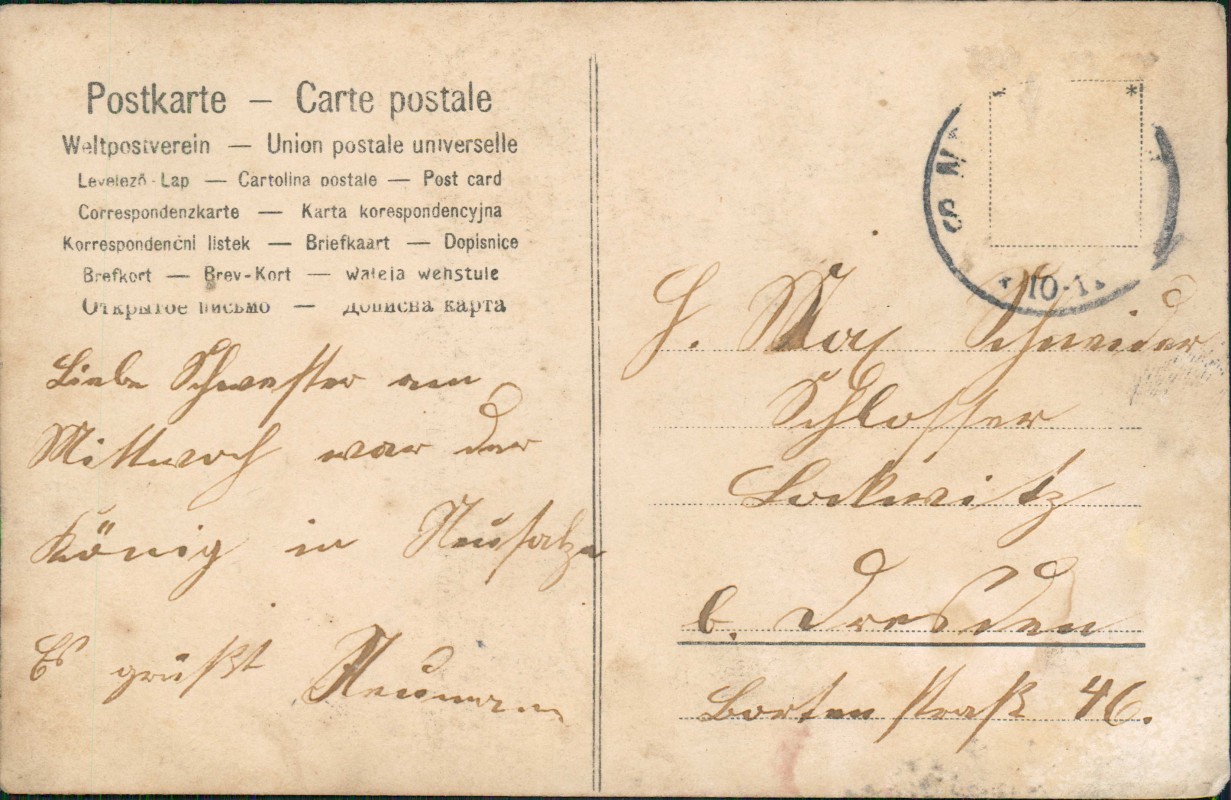 Postkarte — Carte postale
Weltpostverein — Union postale universelle
Levelező-Lap — Cartolina postale — Post card
Correspondenzkarte — Karta korespondencyjna
Korrespondenční listek — Briefkaart — Dopisnice
Brefkort — Brev-Kort — waleja wehstule
Открытое письмо — Дописна карта
Liebe Schwester am
Mittwoch war der
König in Neusalza
Es grüßt Neumann
H. Max Schneider
Schlosser
Lockwitz
b. Dresden
Borten straße 46.
10-1